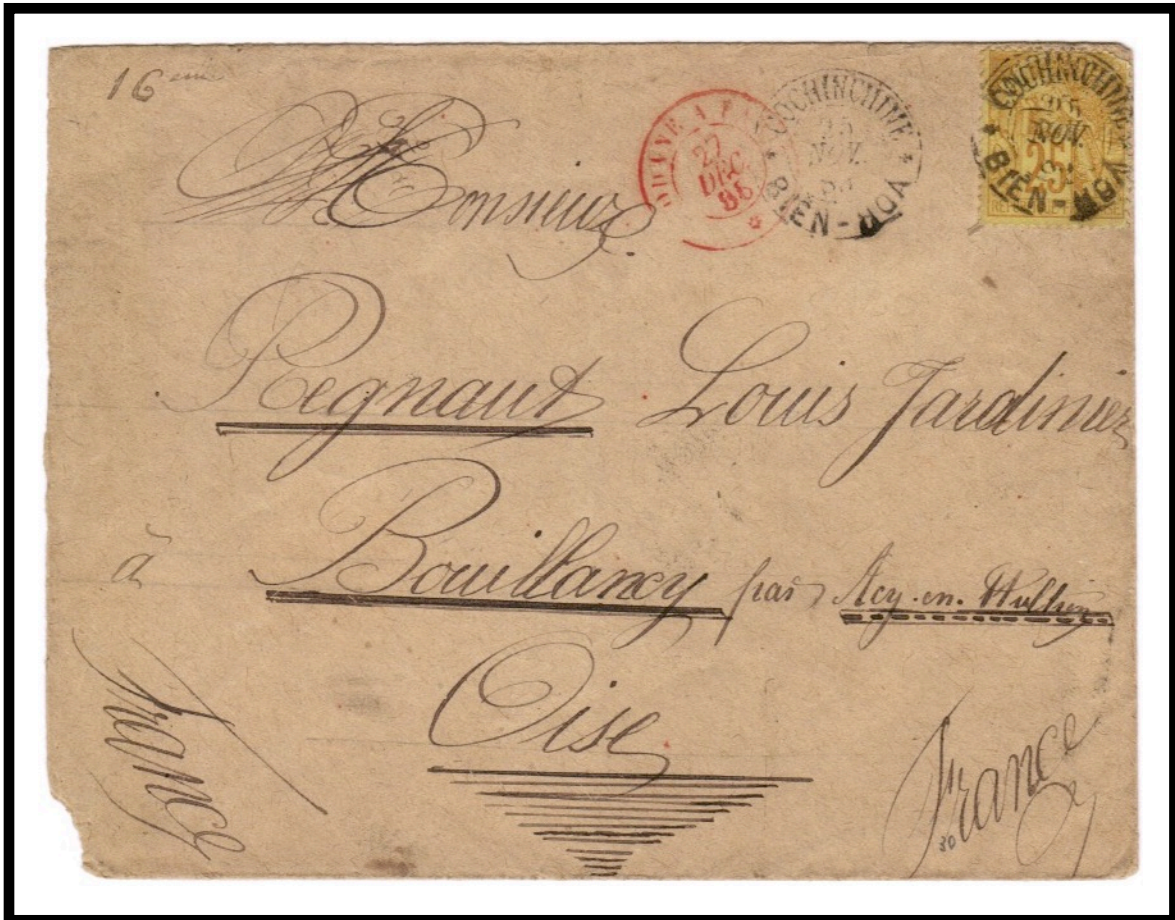 16 eme
COCHINCHINE
25
NOV.
BIEN-HOA
COCHINCHINE
25
NOV.
BIEN-HOA
25
27
DEC
85
Monsieur
Regnaut Louis Jardinier
à Bouillancy par Acy-en-Multien
Oise
France
France
30